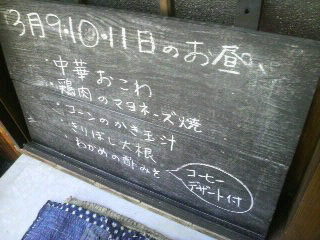 3月9・10・11日のお昼。
・中華おこわ
・鶏肉のマヨネーズ焼
・コーンのかき玉汁
・きりぼし大根
・わかめの酢みそ
コーヒー
デザート付